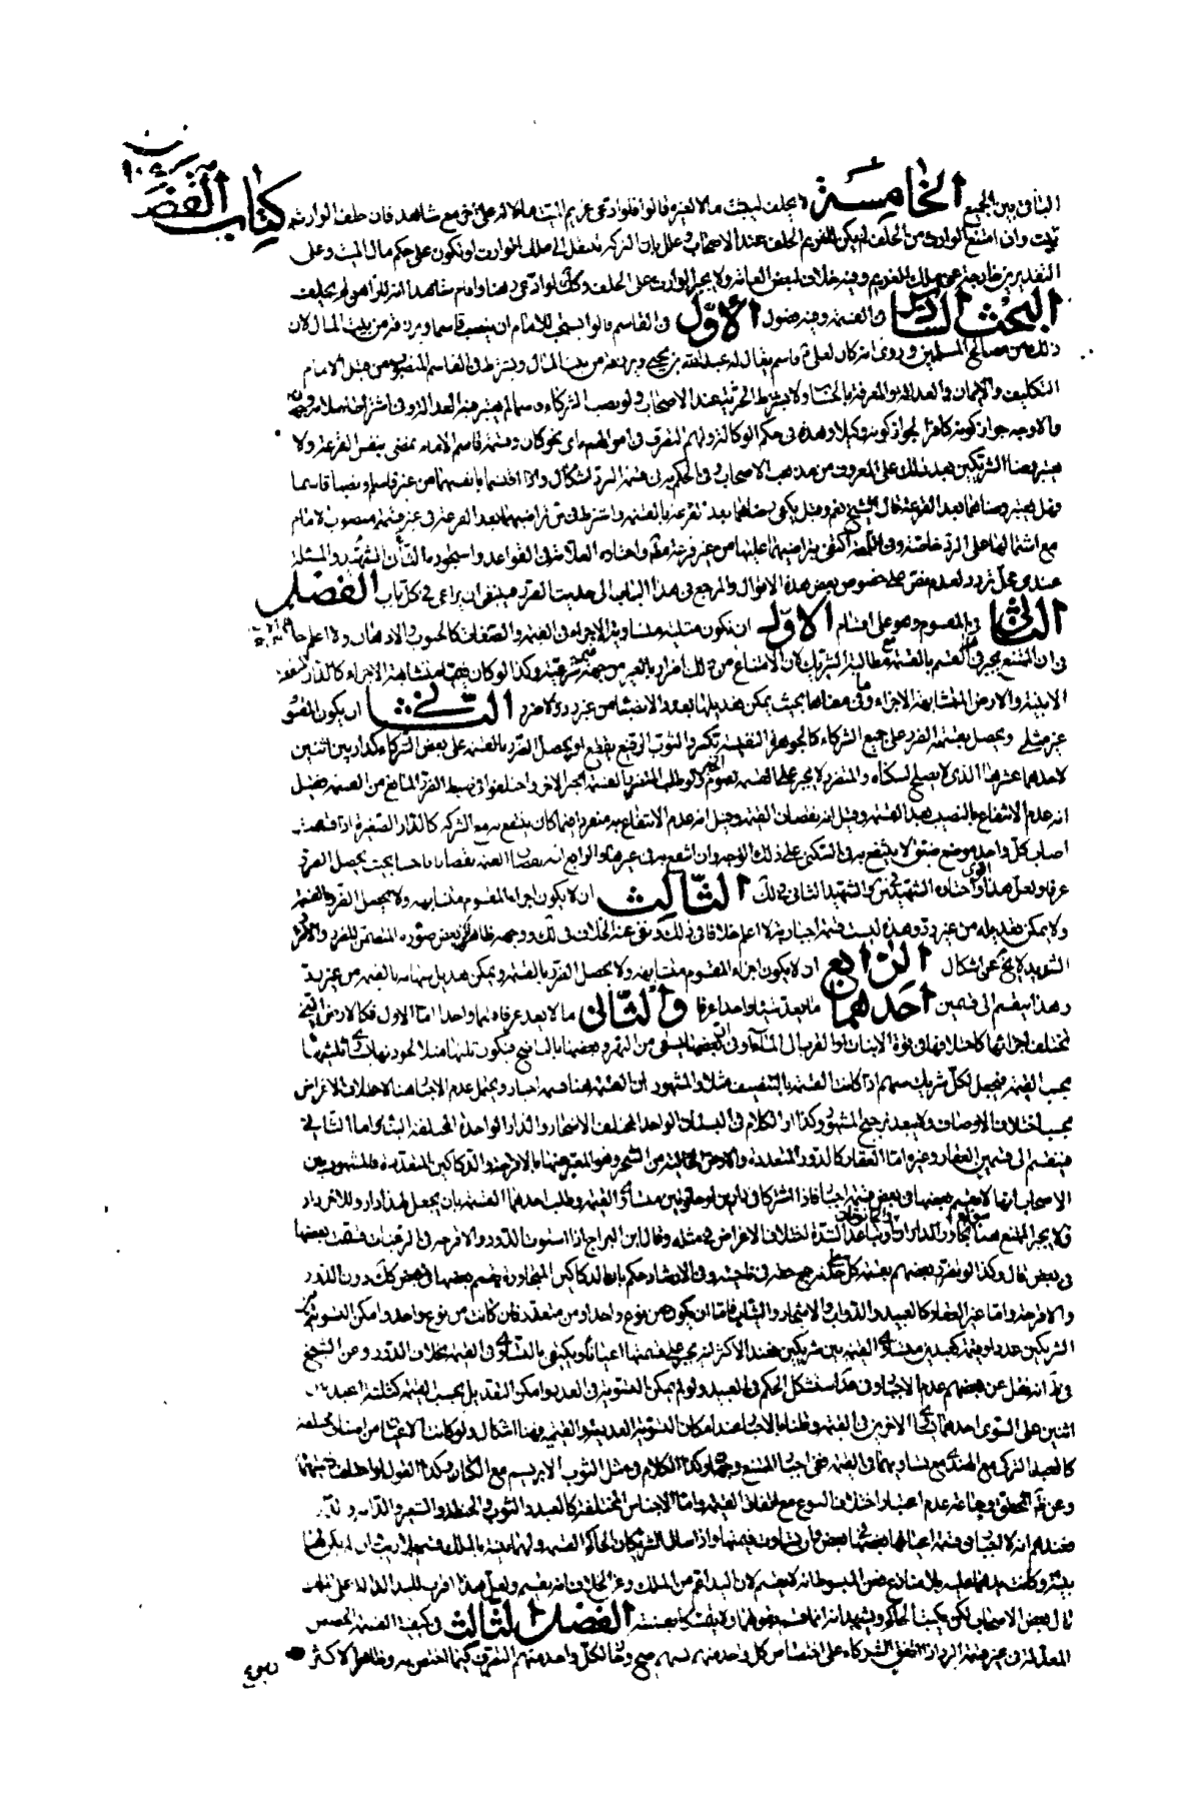 كتاب القضا
الباقي وبين الجميع الخامسة لا يحلف ليثبت مالا لغيره قالوا فلو ادعى غريم الميت مالا له على اخر مع شاهد فان حلف الوارث
ثبت وان امتنع الوارث من الحلف لم يكن للغريم الحلف عند الاصحاب وعلل بان التركة تنتقل الى ملك الوارث او تكون على حكم مال الميت وعلى
التقديرين خارجة عن ملك الغريم وفيه خلاف لبعض العامة ولا يجبر الوارث على الحلف وكذا لو ادعى رهنا واقام شاهدا انه للراهن لم يحلف
البحث السادس في القسمة وفيه فصول الأول في القاسم قالوا يستحب للامام ان ينصب قاسما ويرزقه من بيت المال لان
ذلك من مصالح المسلمين وروى انه كان لعلي ع قاسم يقال له عبد الله بن يحيى ويرزقه من بيت المال ويشترط في القاسم المنصوب من قبل الامام
التكليف والايمان والعدالة والمعرفة بالحساب ولا يشترط الحرية عند الاصحاب ولو نصب الشركاء قاسما لم يعتبر فيه العدالة وفي اشتراط اسلامه وجهان
والاوجه جواز كونه كافرا لجواز كونه وكيلا وهذه في حكم الوكالة ولهم التصرف في اموالهم باي نحو كان وقسمة قاسم الامام تمضى بنفس القرعة ولا
يعتبر رضا الشريكين بعد ذلك على المعروف من مذهب الاصحاب وفي الحكم به في قسمة الرد اشكال واذا اقتسما بانفسهما من غير قاسم او نصبا قاسما
فهل يعتبر رضاهما بعد القرعة قال الشيخ نعم وقيل يكفي رضاهما بعد القرعة بالقسمة واشترط في س تراضيهما بعد القرعة في غير قسمة منصوب الامام
مع اشتمالها على الرد خاصة وفي اللمعة اكتفى بتراضيهما عليها من غير قرعة مطلقا واختاره العلامة في القواعد واستجوده الشهيد الثاني والمسئلة
عندي محل تردد لعدم نص على خصوص بعض هذه الاموال والمرجع في هذا الباب الى حديث الضرر فينبغي ان يراعى في كل باب الفصل
الثاني في المقسوم وهو على اقسام الاول ان تكون مثلية متساوية الاجزاء في القيمة والصفات كالحبوب والادهان ولا اعلم خلافا
في ان الممتنع يجبر في القسم بالقسمة مع مطالبة الشريك لان الامتناع من ذلك اضرار بالغير من جهة شرعية وكذا لو كان قيميا متشابهة الاجزاء كالدار المتفقة
الابنية والارض المتشابهة الاجزاء وما في معناها بحيث يمكن تعديلها بعدد الانصباء من غير رد ولا ضرر الثاني ان يكون المقسوم
غير مثلي ويحصل بقسمة الضرر على جميع الشركاء كالجوهرة النفيسة تكسر والثوب الرقيع يقطع او يحصل الضرر بالقسمة على بعض الشركاء كدار بين اثنين
لاحدهما عشرها الذي لا يصلح لسكناه والمتضرر لا يجبر على القسمة ولو طلب المتضرر القسمة اجبر الاخر واختلفوا في ضبط الضرر المانع من القسمة فقيل
انه عدم الانتفاع بالنصيب بعد القسمة وقيل انه نقصان القيمة وقيل انه عدم الانتفاع به منفردا فيما كان ينتفع به مع الشركة كالدار الصغيرة اذا قسمت
اصاب كل واحد موضع ضيق لا ينتفع به في السكنى على ذلك الوجه وان انتفع به في غيرها والرابع انه نقصان القيمة نقصانا فاحشا بحيث يحصل الضرر
عرفا ولعل هذا اقوى واختاره الشهيد في س والشهيد الثاني في لك الثالث ان لا يكون اجزاء المقسوم متشابهة ولا يحصل الضرر بالقسمة
ولا يمكن تعديله من غير رد وهذه ليست قسمة اجبارية لا اعلم خلافا في ذلك ونفى عنه الخلاف في لك ووجهه ظاهر في بعض صوره المتضمن للضرر والاكراه
الشديد لا يخلو عن اشكال الرابع ان لا يكون اجزاء المقسوم متشابهة ولا يحصل الضرر بالقسمة ويمكن تعديل سهامه بالقيمة من غير رد
وهذا ينقسم الى قسمين احدهما ما يعد شيئا واحدا عرفا والثاني ما لا يعد عرفا شيئا واحدا اما الاول فكالارض التي
تختلف اجزائها كاختلافها في قوة الانبات او القرب الى الماء او في ان بعضها يسقى من النهر وبعضها بالناضح فيكون ثلثها مثلا لجودتها يساوي ثلثيها
بحسب القيمة فيجعل لكل شريك سهم اذا كانت القسمة بالتنصيف مثلا والمشهور ان القسمة هنا قسمة اجبار ويحتمل عدم الاجبار هنا لاختلاف الاغراض
بحسب اختلاف الاوصاف ولا يبعد ترجيح المشهور وكذا الكلام في البستان الواحد المختلف الاشجار والدار الواحدة المختلفة البناء واما الثاني
فينقسم الى قسمين العقار وغيره اما العقار كالدور المتعددة والارض الخالية من الشجر وهو المعبر عنها بالاقرحة والدكاكين المتعددة فالمشهور بين
الاصحاب انها لا يقسم بعضها في بعض قسمة اجبار فاذا اشتركا في دارين او حانوتين متساوي القيمة وطلب احدهما القسمة بان يجعل لهذا دار وللاخر دار
فلا يجبر الممتنع سواء تجاور الداران او تباعدا لشدة اختلاف الاغراض في مثله وقال ابن البراج اذا استوت الدور والاقرحة في الرغبات قسمت بعضها
في بعض قال وكذا لو تضرر بعضهم بقسمة كل على حدة جمع حقه في ناحية وفي الارشاد حكم بان الدكاكين المتجاورة يقسم بعضها في بعض دون الدور
والاقرحة واما غير العقار كالعبيد والدواب والاشجار والثياب فاما ان يكون من نوع واحد او من متعدد فان كانت من نوع واحد وامكن التسوية بين
الشريكين عددا وقيمة كعبدين متساوي القيمة بين شريكين فعند الاكثر انه يجبر على قسمتها اعيانا ويكتفى بالتساوي في القيمة بخلاف الدور وعن الشيخ
في ط انه نقل عن بعضهم عدم الاجبار وفي عد استشكل الحكم في العبيد ولو لم يمكن التسوية في العدد وامكن التعديل بحسب القيمة كثلثة اعبد بين
اثنين على السوى احدهم يساوي الاخرين في القيمة وقلنا بالاجبار عند امكان التسوية العددية والقيمة فهنا اشكال ولو كانت الاعيان من اصناف مختلفة
كالعبد التركي مع الهندي مع تساويهما في القيمة ففي اجبار الممتنع وجهان وكذا الكلام في مثل الثوب الابريسم مع الكتان وكذا القول لو اختلفت قيمتها
وعن ظاهر المحقق وجماعة عدم اعتبار اختلاف النوع مع اتفاق القيمة واما الاجناس المختلفة كالعبد والثوب والحنطة والشعير والدابة والدار
فعندهم انه لا اجبار في قسمة اعيانها بعضها في بعض وان تساوت قيمتها واذا سال الشريكان الحاكم القسمة ولهما بينة بالملك قسم بلا ريب وان لم يكن لهما
بينة وكانت يدهما عليه بلا منازع فعن المبسوط انه لا يقسم لان اليد اعم من الملك وعن الخلاف انه يقسم ولعل هذا اقرب لليد الدالة على الملك
قال بعض الاصحاب لكن يكتب الحاكم ويشهد انه انما قسم بقولهما ولا يثبت كالبينة الفصل الثالث في كيفية القسمة الحصص
المعدلة في غير قسمة الرد اذا اتفق الشركاء على اختصاص كل واحد منهم بسهم صح وكان لكل واحد منهم التصرف فيما اختص به وظاهر الاكثر